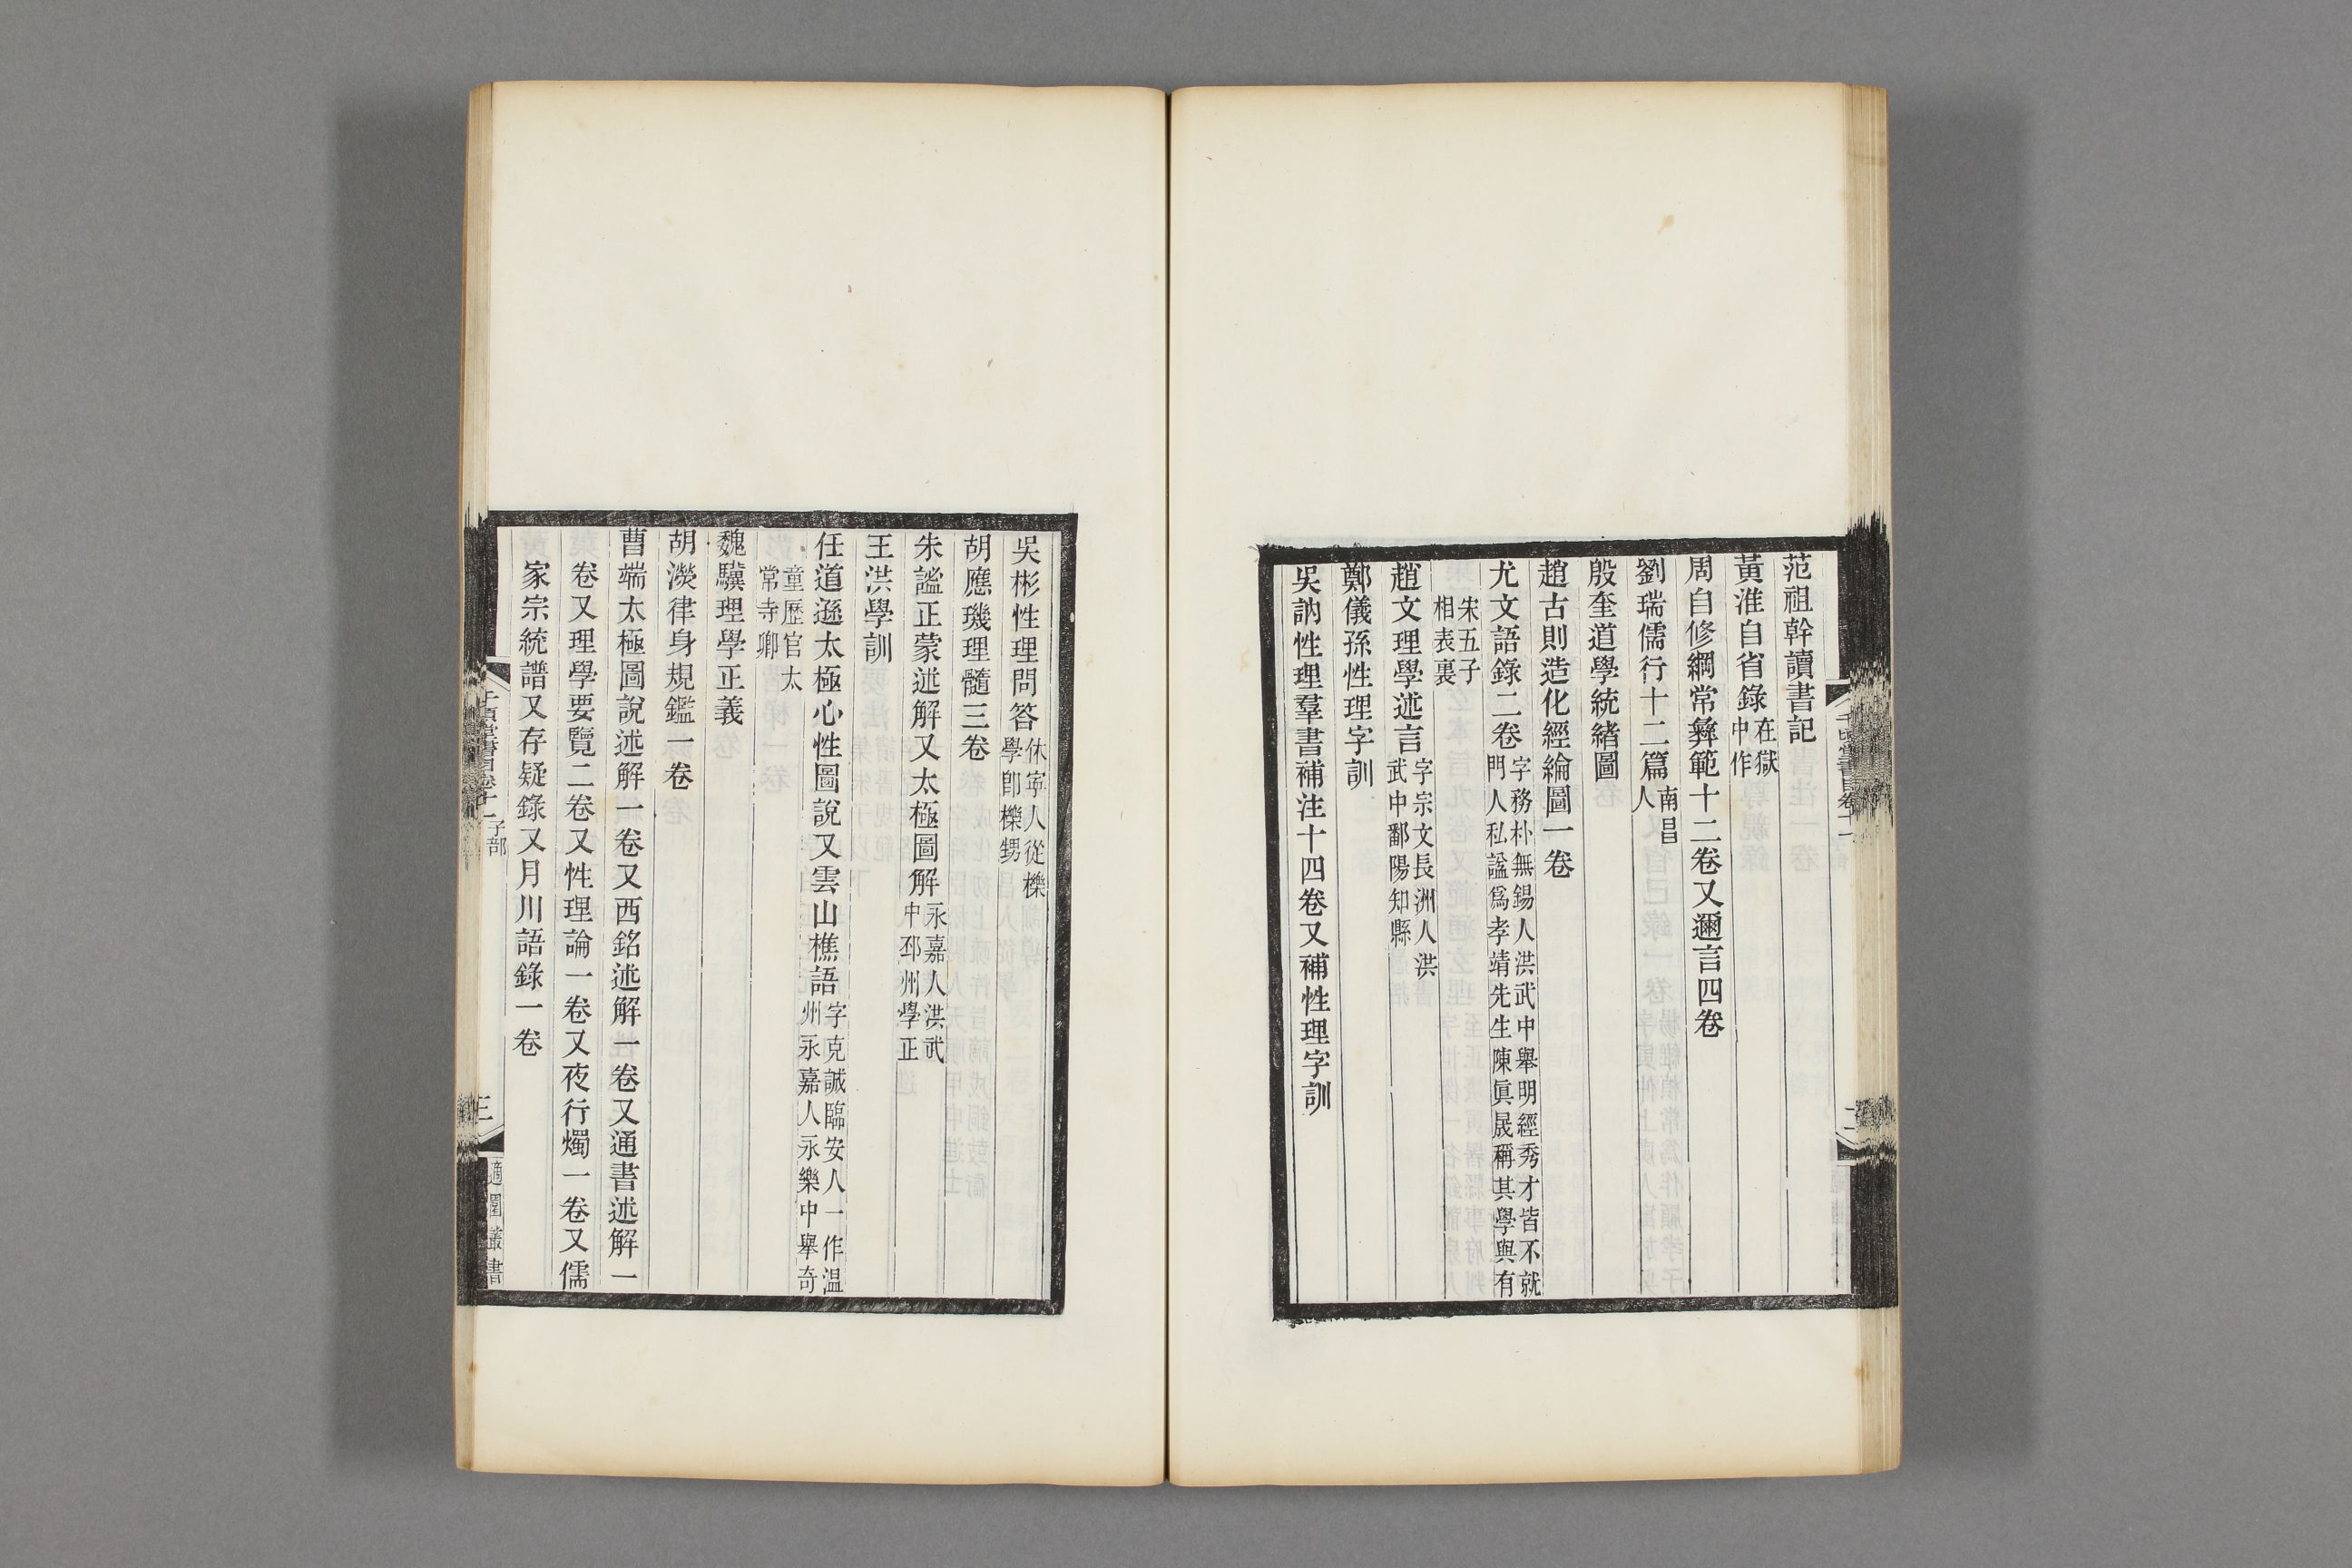 范祖幹讀書記
黃淮自省錄在獄中作
周自修綱常彝範十二卷又邇言四卷
劉瑞儒行十二篇南昌人
殷奎道學統緒圖
趙古則造化經綸圖一卷
尤文語錄二卷字務朴無錫人洪武中舉明經秀才皆不就門人私諡爲孝靖先生陳眞晟稱其學與有
宋五子相表裏
趙文理學述言字宗文長洲人洪武中鄱陽知縣
鄭儀孫性理字訓
吳訥性理羣書補注十四卷又補性理字訓
吳彬性理問答休寧人從櫟學卽櫟甥
胡應璣理髓三卷
朱謐正蒙述解又太極圖解永嘉人洪武中邳州學正
王洪學訓
任道遜太極心性圖說又雲山樵語字克誠臨安人一作温州永嘉人永樂中舉奇
童歷官太常寺卿
魏驥理學正義
胡濙律身規鑑一卷
曹端太極圖說述解一卷又西銘述解一卷又通書述解一
卷又理學要覽二卷又性理論一卷又夜行燭一卷又儒
家宗統譜又存疑錄又月川語錄一卷
千頃堂書目卷十一 子部
三
適園叢書